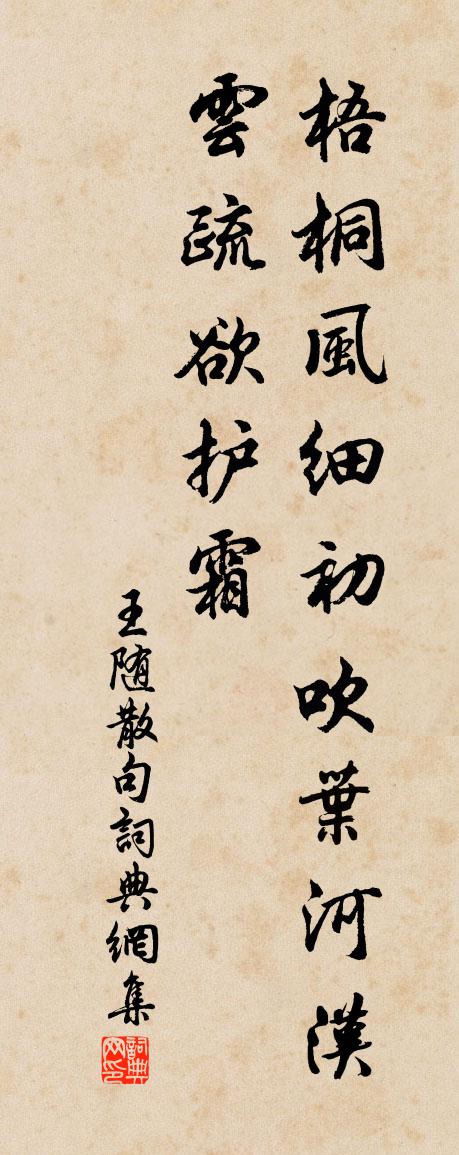 梧桐風細初吹葉河漢
雲疏欲护霜
王随散句詞典網集
詞典网印